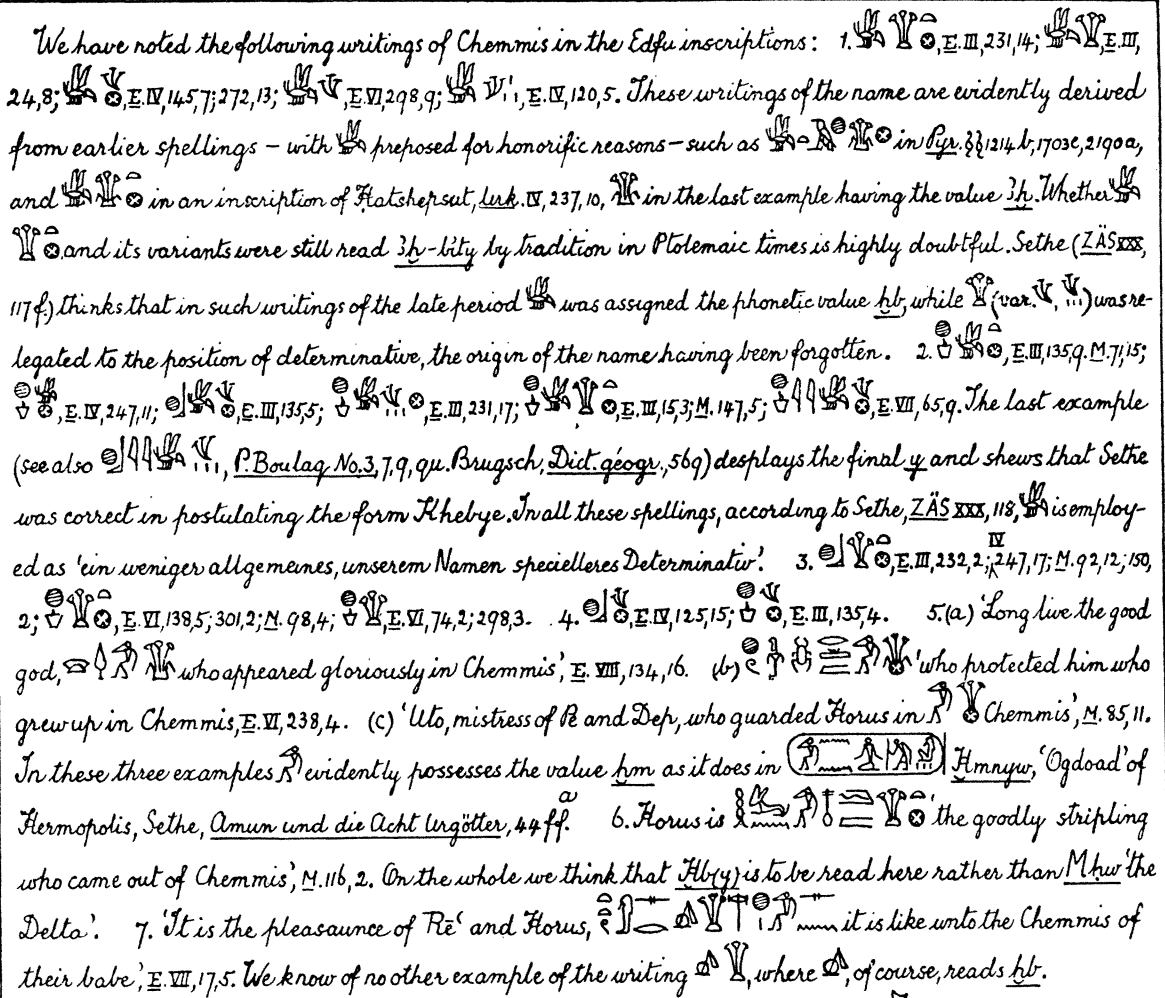 We have noted the following writings of Chemmis in the Edfu inscriptions: 1. , E.III,231,14; , E.III,
24,8; , E.IV,145,7; 272,13; , E.VI,298,9; , E.IV,120,5. These writings of the name are evidently derived
from earlier spellings – with preposed for honorific reasons – such as in Pyr. §§1214b,1703c,2190a,
and in an inscription of Hatshepsut, Urk. IV, 237,10, in the last example having the value ꜣḫ. Whether
and its variants were still read ꜣḫ-bity by tradition in Ptolemaic times is highly doubtful. Sethe (ZÄS XXX,
117f.) thinks that in such writings of the late period was assigned the phonetic value ḫb, while (var. , ) was re-
legated to the position of determinative, the origin of the name having been forgotten. 2. , E.III,135,9. M.71,15;
, E.IV,247,11; , E.III,135,5; , E.III,231,17; , E.III,15,3; M.147,5; , E.VII,65,9. The last example
(see also , P. Boulaq No.3,7,9, qu. Brugsch, Dict. géogr., 569) desplays the final y and shews that Sethe
was correct in postulating the form Khebye. In all these spellings, according to Sethe, ZÄS XXX, 118, is employ-
ed as 'ein weniger allgemeines, unserem Namen specielleres Determinativ'. 3. , E.III,232,2; IV 247,17; M.92,12; 150,
2; , E.VI,138,5; 301,2; M.98,4; , E.VI,74,2; 298,3. 4. , E.IV,125,15; , E.III,135,4. 5.(a) 'Long live the good
god, who appeared gloriously in Chemmis', E.VIII,134,16. (b) 'who protected him who
grew up in Chemmis, E.VI,238,4. (c) 'Uto, mistress of Pē and Dep, who guarded Horus in Chemmis', M.85,11.
In these three examples evidently possesses the value ḫm as it does in Ḫmnyw, 'Ogdoad' of
Hermopolis, Sethe, Amun und die Acht Urgötter, 44ff.a 6. Horus is 'the goodly stripling
who came out of Chemmis', M.116,2. On the whole we think that Ḫb(y) is to be read here rather than Mḥw 'the
Delta'. 7. 'It is the pleasaunce of Rēʿ and Horus, it is like unto the Chemmis of
their babe', E.VII,17,5. We know of no other example of the writing , where , of course, reads ḫb.